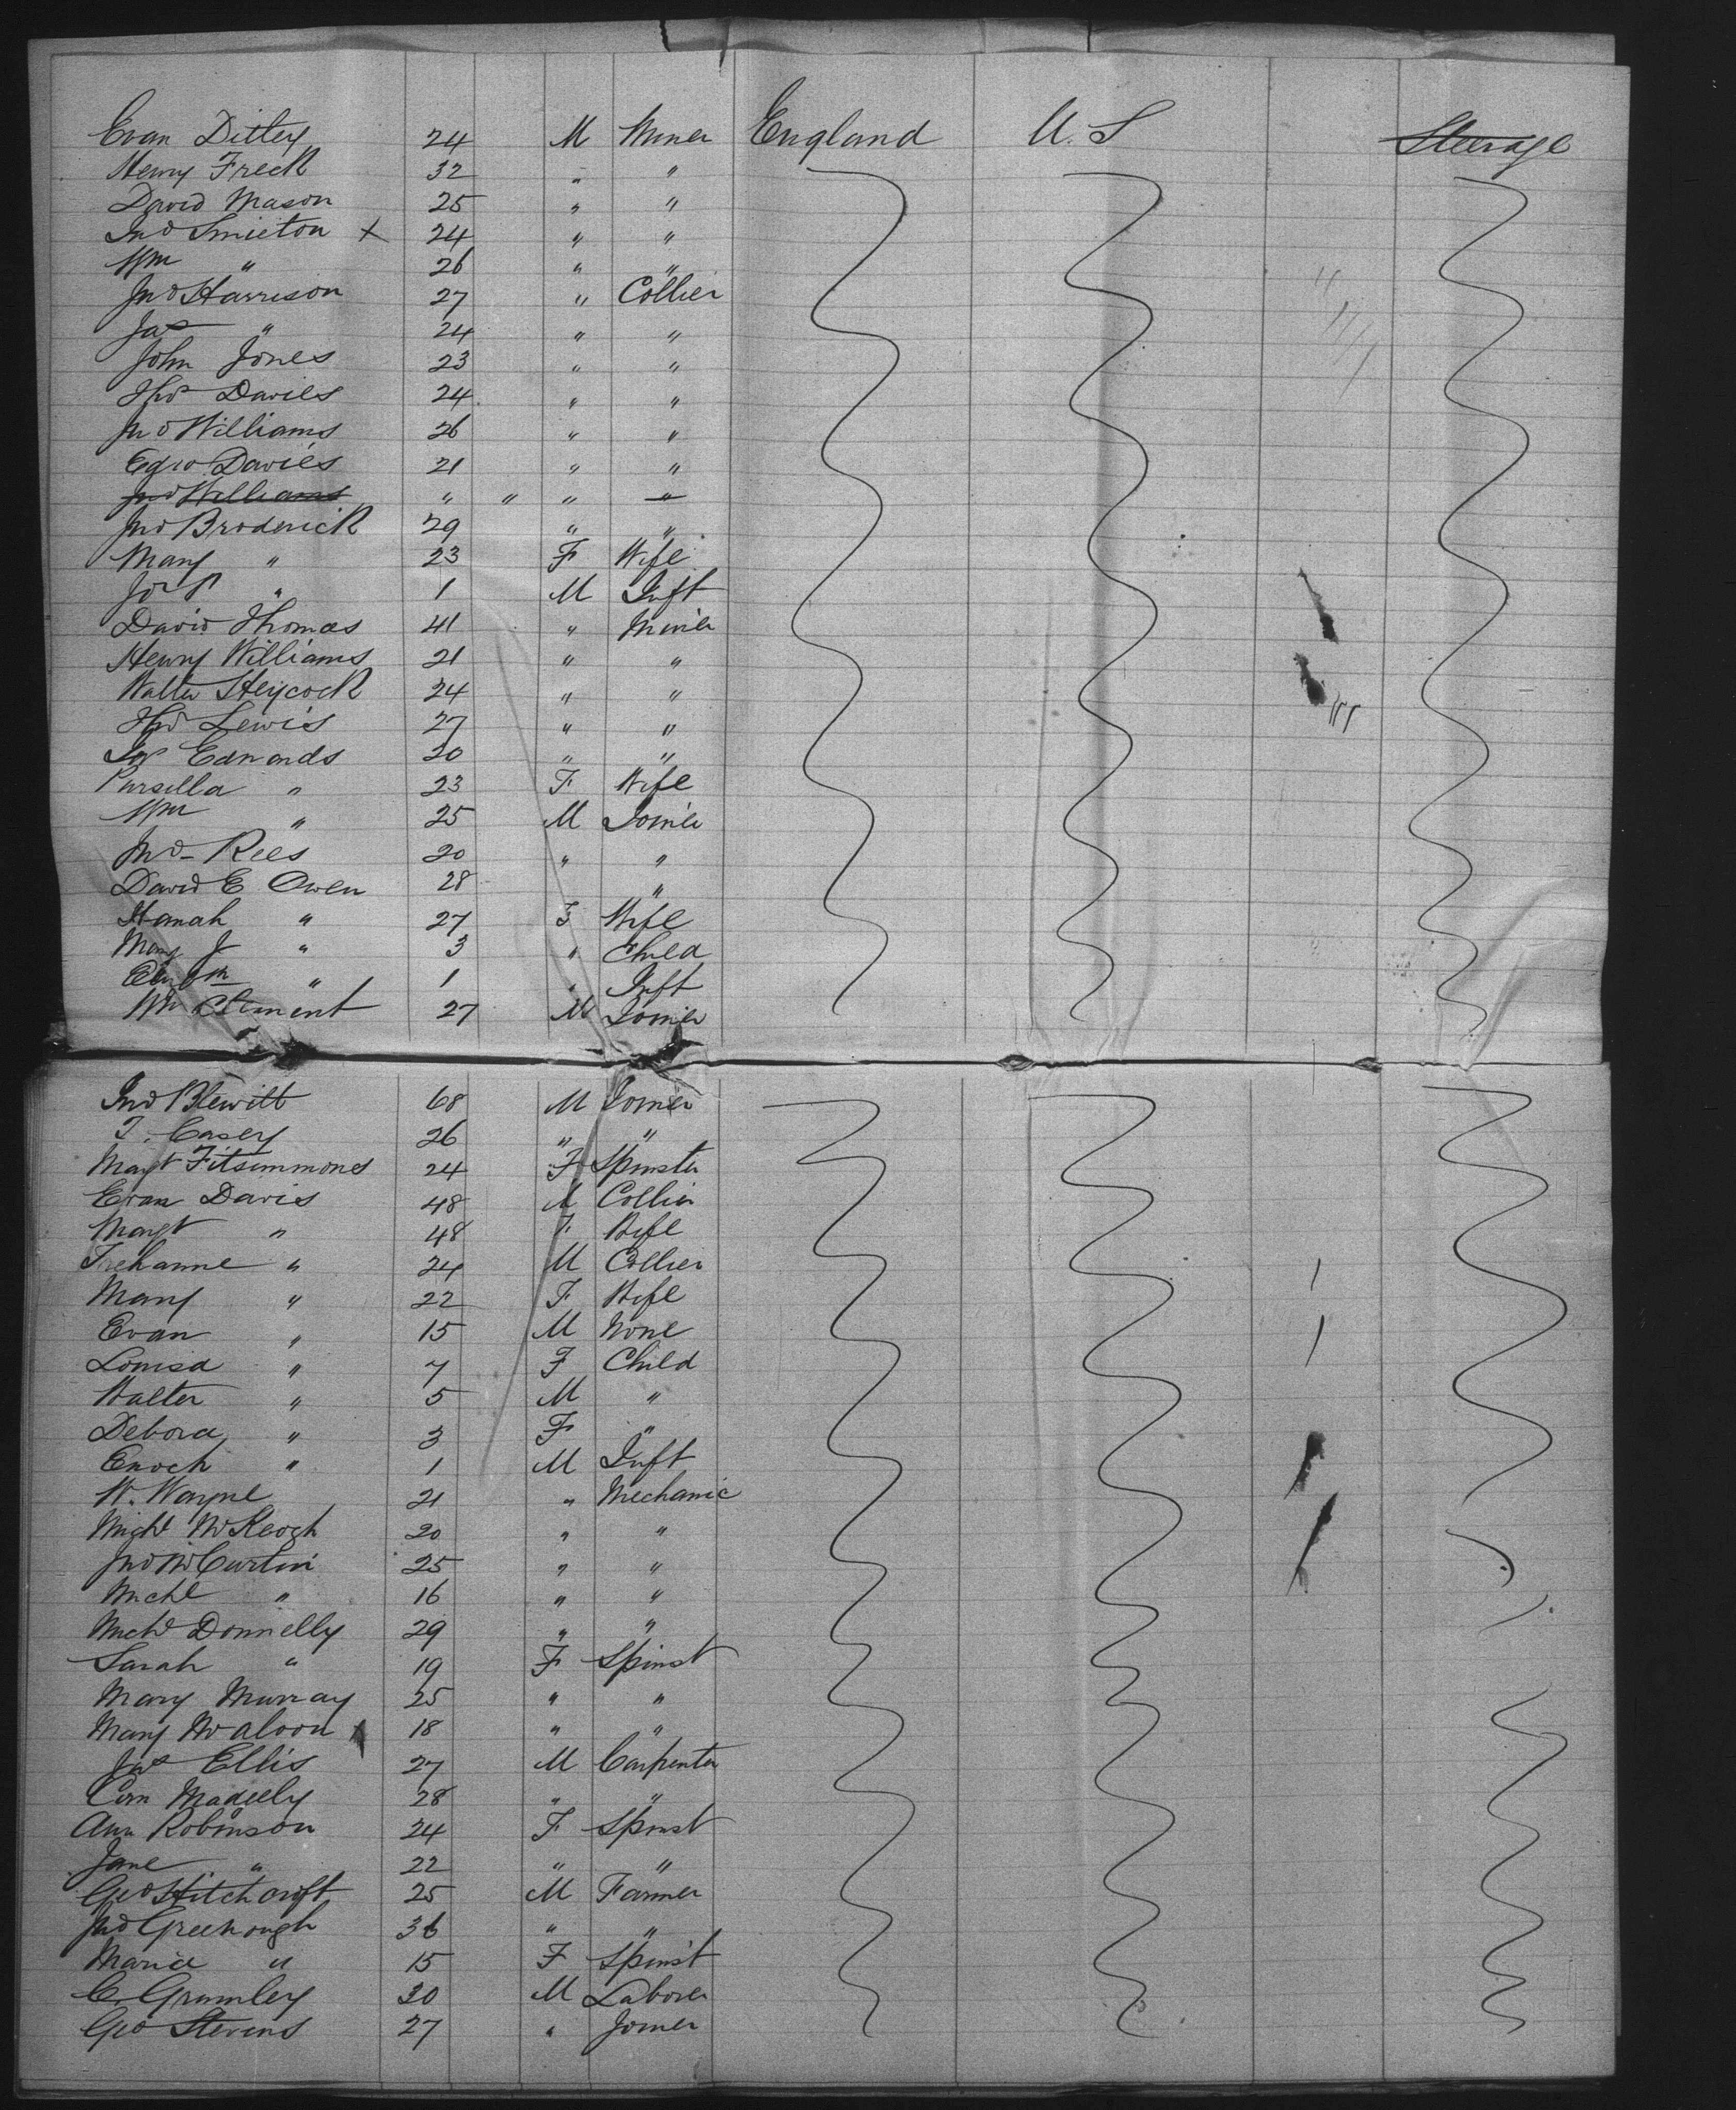 Evan Ditley 24 M Miner England U.S Steerage
Henry Freck 32 " "
David Mason 25 " "
Jno Smeeton X 24 " "
Wm " 26 " "
Jno Harrison 27 " Collier
Jas " 24 " "
John Jones 23 " "
Thos Davies 24 " "
Jno Williams 26 " "
Edwd Davies 21 " "
Jno Williams " " " "
Jno Broderick 29 " "
Mary " 23 F Wife
" 1 M Inft
David Thomas 41 " Miner
Henry Williams 21 " "
Walter Heycock 24 " "
Thos Lewis 27 " "
Jos Edmonds 20 " "
Pursella " 23 F Wife
Wm " 25 M Joiner
Jno Rees 20 " "
David E Owen 28 "
Hanah " 27 F Wife
Mary J " 3 " Child
Elizth " 1 " Inft
Wm Clement 27 M Joiner
Jno Blewitt 68 M Joiner
T. Casey 26 " "
Magt Fitsimmons 24 F Spinster
Evan Davis 48 M Collier
Magt " 48 F Wife
Trehanne " 24 M Collier
Mary " 22 F Wife
Evan " 15 M None
Louisa " 7 F Child
Walter " 5 M "
Debora " 3 F "
Enoch " 1 M Inft
W. Wayne 21 " Mechanic
Michl McKeogh 20 " "
Jno McCurtin 25 " "
Michl " 16 " "
Michl Donnelly 29 " "
Sarah " 19 F Spinst
Mary Murray 25 " "
Mary McAloon X 18 " "
Jas Ellis 27 M Carpenter
Corn Madeely 28 " "
Ann Robinson 24 F Spinst
Jane " 22 " "
Geo Hitchcroft 25 M Farmer
Jno Greenough 36 " "
Maria " 15 F Spinst
C. Grumley 30 M Laborer
Geo Stevens 27 " Joiner